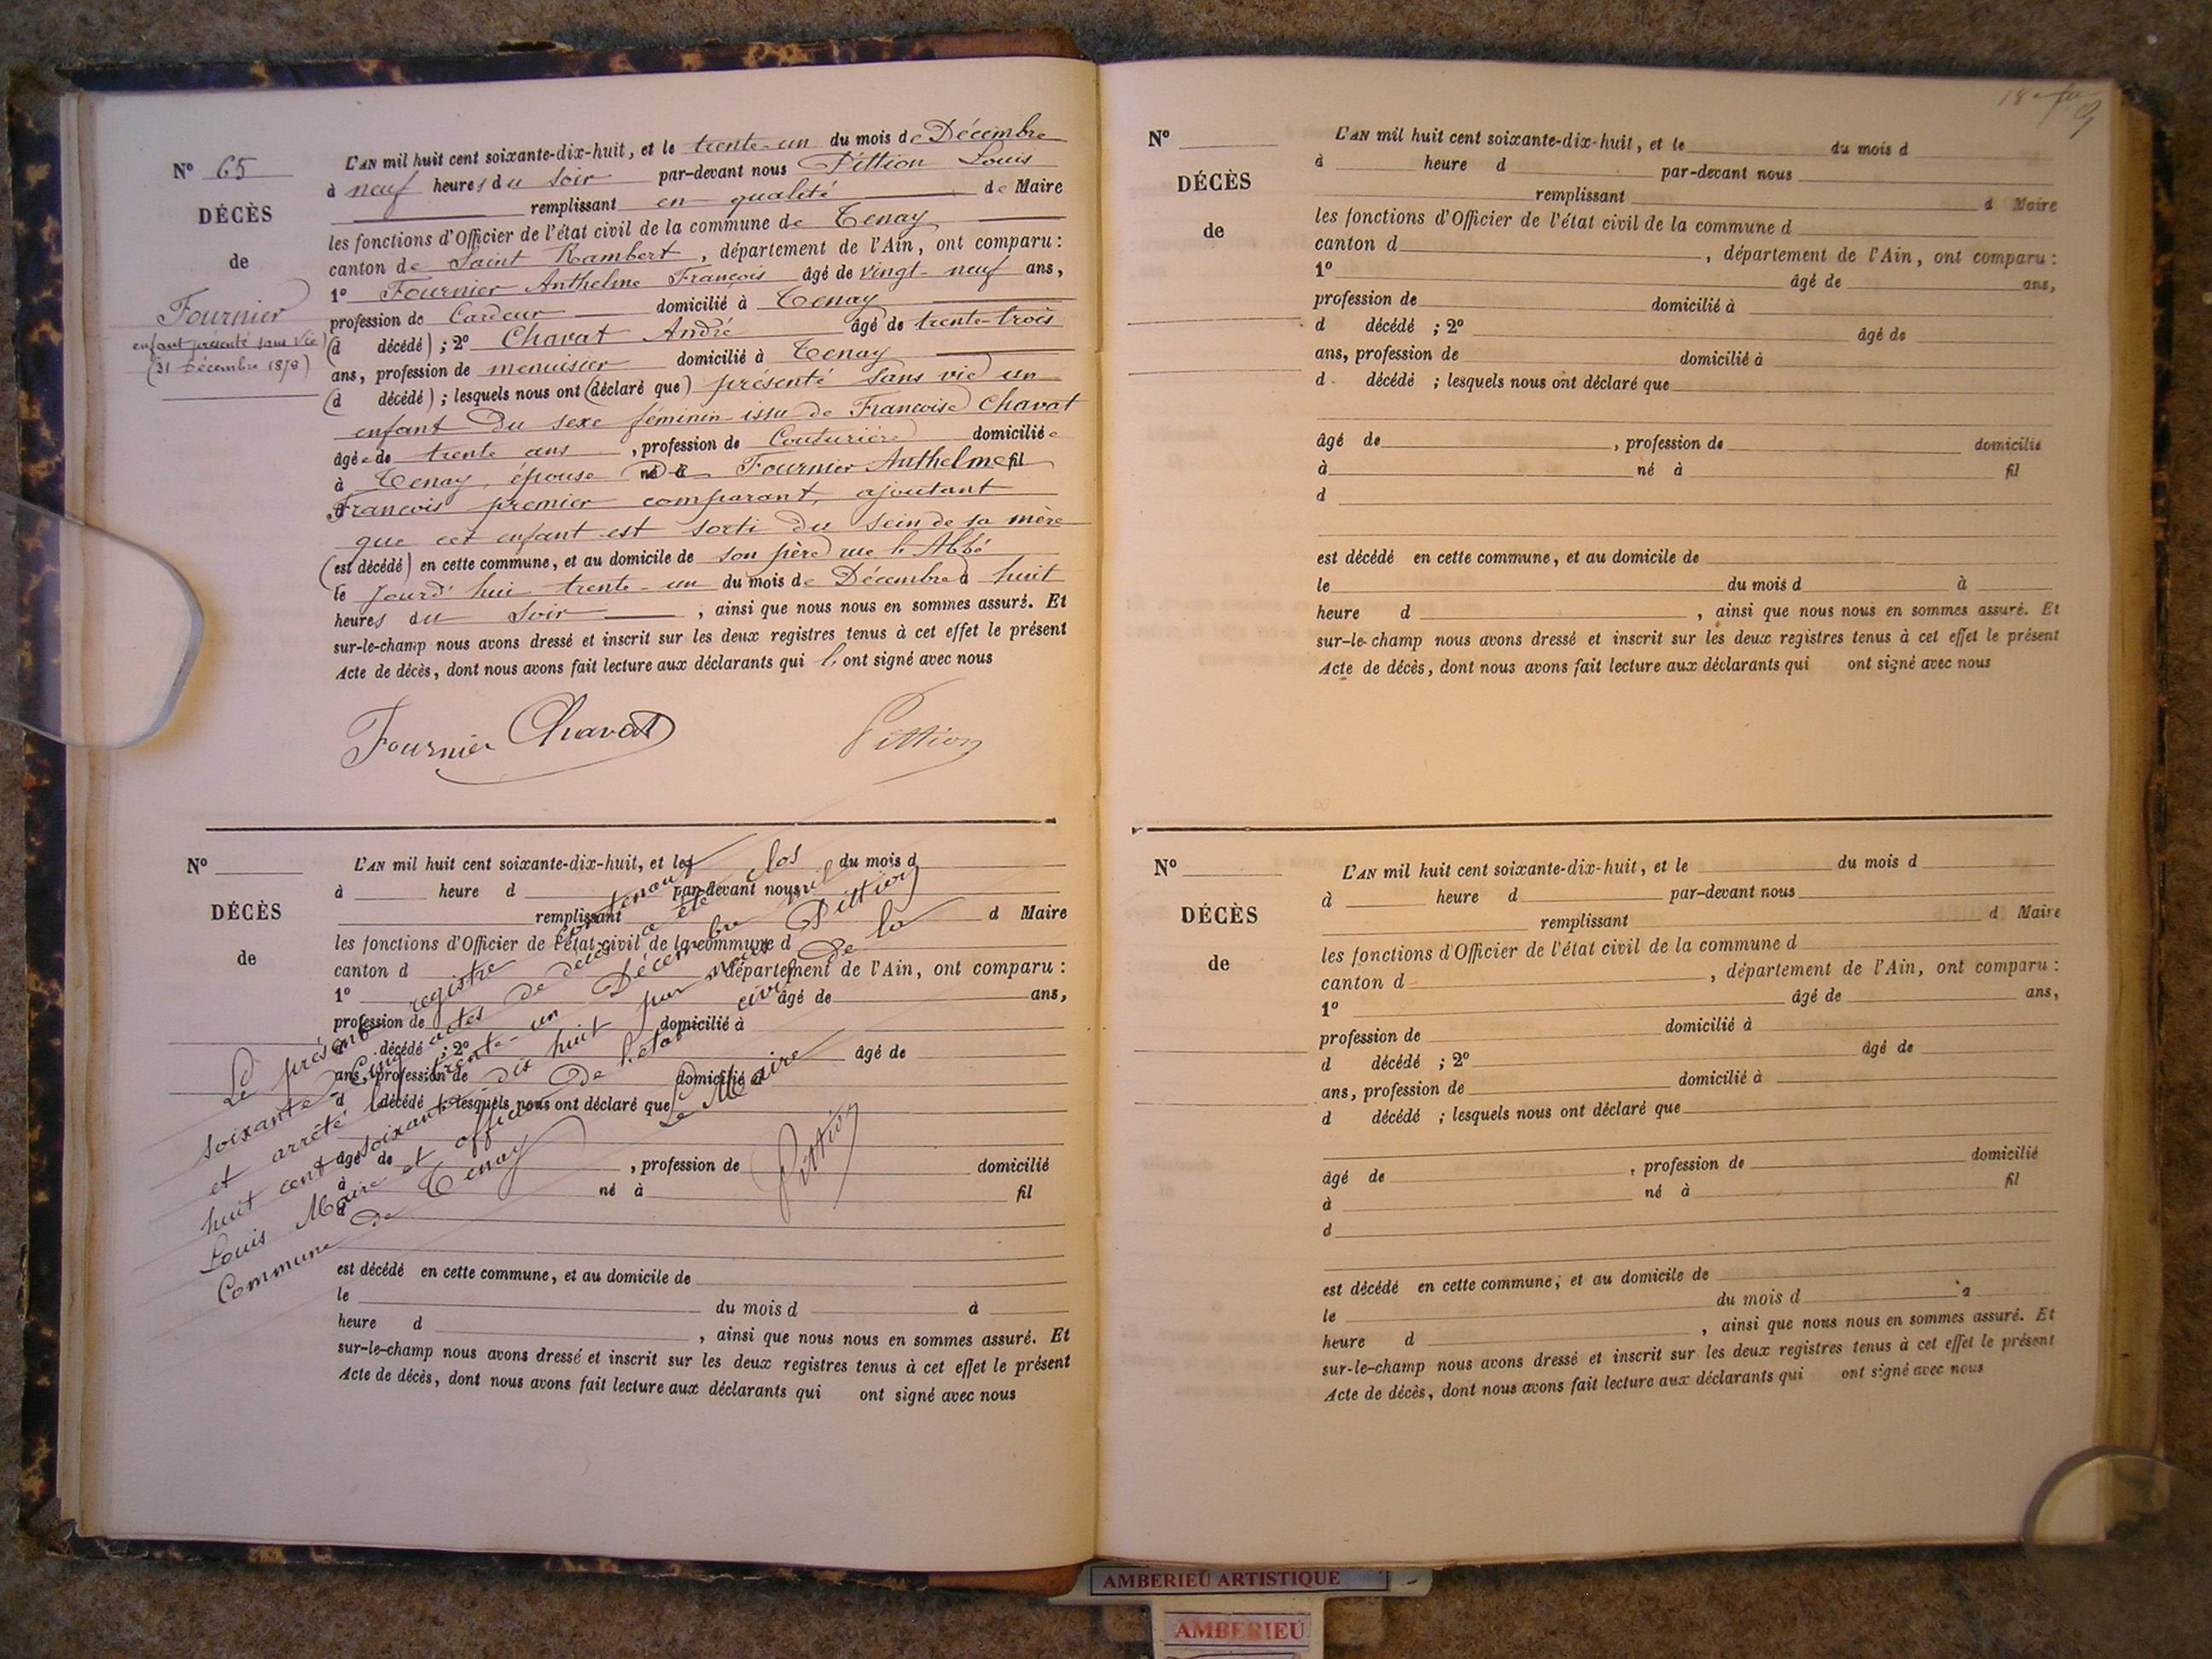 N° 65
DÉCÈS
de
Fournier
enfant présenté sans vie
(31 Décembre 1878)
L'AN mil huit cent soixante-dix-huit, et le trente-un du mois de Décembre
à neuf heures du soir par-devant nous Pittion Louis
remplissant en qualité de Maire
les fonctions d'Officier de l'état civil de la commune de Tenay
canton de Saint Rambert, département de l'Ain, ont comparu :
1° Fournier Anthelme François âgé de vingt-neuf ans,
profession de Cardeur domicilié à Tenay
(d décédé) ; 2° Chavat André âgé de trente-trois
ans, profession de menuisier domicilié à Tenay
(d décédé) ; lesquels nous ont (déclaré que) présenté sans vie un
enfant du sexe féminin issu de Francoise Chavat
âgée de trente ans, profession de Couturière domiciliée
à Tenay, épouse né à de Fournier Anthelme fil
Francois premier comparant, ajoutant
que cet enfant est sorti du sein de sa mère
(est décédé) en cette commune, et au domicile de son père rue l'Abbé
le jourd'hui trente-un du mois de Décembre à huit
heures du soir, ainsi que nous nous en sommes assuré. Et
sur-le-champ nous avons dressé et inscrit sur les deux registres tenus à cet effet le présent
Acte de décès, dont nous avons fait lecture aux déclarants qui l'ont signé avec nous
Fournier Chavat Pittion
N°
DÉCÈS
de
L'AN mil huit cent soixante-dix-huit, et le du mois d
à heure d par-devant nous
remplissant d Maire
les fonctions d'Officier de l'état civil de la commune d
canton d , département de l'Ain, ont comparu :
1° âgé de ans,
profession de domicilié à
d décédé ; 2° âgé de
ans, profession de domicilié à
d décédé ; lesquels nous ont déclaré que
âgé de , profession de domicilié
à né à fil
d
est décédé en cette commune, et au domicile de
le du mois d à
heure d , ainsi que nous nous en sommes assuré. Et
sur-le-champ nous avons dressé et inscrit sur les deux registres tenus à cet effet le présent
Acte de décès, dont nous avons fait lecture aux déclarants qui ont signé avec nous
Le présent registre contenant
soixante-cinq actes de décès a été clos
et arrêté le trente-un Décembre mil
huit cent soixante-dix huit par nous Pittion
Louis Maire et officier de l'état civil de la
Commune de Tenay
Le Maire
Pittion
N°
DÉCÈS
de
L'AN mil huit cent soixante-dix-huit, et le du mois d
à heure d par-devant nous
remplissant d Maire
les fonctions d'Officier de l'état civil de la commune d
canton d , département de l'Ain, ont comparu :
1° âgé de ans,
profession de domicilié à
d décédé ; 2° âgé de
ans, profession de domicilié à
d décédé ; lesquels nous ont déclaré que
âgé de , profession de domicilié
à né à fil
d
est décédé en cette commune, et au domicile de
le du mois d à
heure d , ainsi que nous nous en sommes assuré. Et
sur-le-champ nous avons dressé et inscrit sur les deux registres tenus à cet effet le présent
Acte de décès, dont nous avons fait lecture aux déclarants qui ont signé avec nous
N°
DÉCÈS
de
L'AN mil huit cent soixante-dix-huit, et le du mois d
à heure d par-devant nous
remplissant d Maire
les fonctions d'Officier de l'état civil de la commune d
canton d , département de l'Ain, ont comparu :
1° âgé de ans,
profession de domicilié à
d décédé ; 2° âgé de
ans, profession de domicilié à
d décédé ; lesquels nous ont déclaré que
âgé de , profession de domicilié
à né à fil
d
est décédé en cette commune, et au domicile de
le du mois d à
heure d , ainsi que nous nous en sommes assuré. Et
sur-le-champ nous avons dressé et inscrit sur les deux registres tenus à cet effet le présent
Acte de décès, dont nous avons fait lecture aux déclarants qui ont signé avec nous
AMBERIEU ARTISTIQUE
AMBERIEU